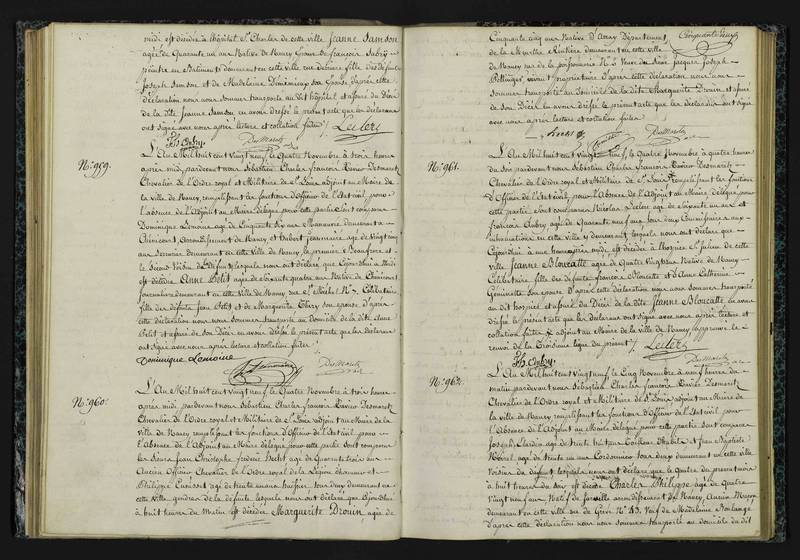 midi est décédée à l'hôpital St Charles de cette ville Jeanne Samson
agée de Quarante un ans Native de Nancy Epouse de françois Aubry
peintre en Batiments demeurant en cette ville rue derriere fille des défunts
Joseph Samson et de Madeleine son Epouse d'après cette
déclaration nous nous sommes transporté au dit hôpital et assuré du Décès
de la dite Jeanne Samson en avons dressé le présent acte que les déclarans
ont signé avec nous après lecture et collation faites
Leclerc
No. 959.
L'An Mil huit cent vingt neuf, le Quatre Novembre à trois heures
après midi, pardevant nous Sébastien Charles françois Xavier Desmaretz
Chevalier de l'Ordre royal et Militaire de St Louis adjoint au Maire de
la ville de Nancy, remplissant les fonctions d'Officier de l'Etat civil, pour
l'absence de l'Adjoint au Maire délégué pour cette partie Sont comparus
Dominique Lemoine agé de Cinquante Six ans Manoeuvre demeurant à
arrondissement de Nancy et hubert agé de vingt cinq
ans demeurant en cette Ville de Nancy, le premier Beaufrere et
le Second Voisin de la Défunte lesquels nous ont déclaré que Cejourd'hui à Midi
est décédée Anne Petit agée de soixante quatre ans Native de
demeurante en cette Ville de Nancy rue St Michel No 7. Célibataire
fille des défunts Jean Petit et de Marguerite Thiry son épouse d'après
cette déclaration nous nous sommes transporté au Domicile de la dite Anne
Petit et assuré de son Décès en avons dressé le présent acte que les déclarans
ont signé avec nous après lecture et collation faites
Dominique Lemoine
No. 960.
L'An Mil huit cent vingt neuf, le Quatre Novembre à trois heures
après midi, pardevant nous Sébastien Charles françois Xavier Desmaretz
Chevalier de l'Ordre royal et Militaire de St Louis adjoint au Maire de la
ville de Nancy remplissant les fonctions d'Officier de l'Etat civil pour
l'Absence de l'Adjoint au Maire délégué pour cette partie Sont comparus
les Sieurs Jean Christophe frédéric Hecht agé de Quarante trois ans
Ancien Officier Chevalier de l'Ordre royal de la Légion d'honneur et
Philippe agé de trente un ans huissier tous deux demeurant en
cette Ville, gendres de la défunte lesquels nous ont déclaré que Cejourd'hui
à huit heures du Matin est décédée Marguerite Drouin agée de
Cinquante cinq ans Native d'Azay Département
de la Meurthe Rentière demeurant en cette ville
de Nancy rue de la poissonnerie No 2 Veuve du Sieur Jacques Joseph
vivant propriétaire d'après cette déclaration nous nous
sommes transporté au Domicile de la dite Marguerite Drouin et assuré
de son Décès en avons dressé le présent acte que les déclarans ont signé
avec nous après lecture et collation faites
Hecht
No. 961.
L'An Mil huit cent vingt neuf, le Quatre Novembre à quatre heures
du soir pardevant nous Sébastien Charles françois Xavier Desmaretz
Chevalier de l'Ordre royal et Militaire de St Louis remplissant les fonctions
d'Officier de l'Etat civil, pour l'Absence de l'Adjoint au Maire délégué pour
cette partie Sont comparus Nicolas Leclerc agé de soixante un ans et
francois Aubry agé de Quarante neuf ans tous deux Commissaires aux
inhumations en cette Ville y demeurant lesquels nous ont déclaré que
Cejourd'hui à une heure après midi, est décédée à l'hospice St Julien de cette
ville Jeanne Bloucatte agée de Quatre vingt treize Native de Nancy
Célibataire fille des défunts francois Bloucatte et d'Anne Catherine
son épouse D'après cette déclaration nous nous sommes transporté
au dit hospice et assuré du Décès de la dite Jeanne Bloucatte en avons
dressé le présent acte que les déclarans ont signé avec nous après lecture et
collation faites adjoint au Maire de la ville de Nancy approuvé le
renvoi de la Troisième ligne du présent
Leclerc
No. 962.
L'An Mil huit cent vingt neuf, le Cinq Novembre à neuf heures du
matin pardevant nous Sébastien Charles francois Xavier Desmaretz
Chevalier de l'Ordre royal et Militaire de St Louis adjoint au Maire de
la ville de Nancy remplissant les fonctions d'Officier de l'Etat civil pour
l'Absence de l'Adjoint au Maire délégué pour cette partie Sont comparus
Joseph Claudin agé de trente huit ans Tailleur d'habits et Jean Baptiste
agé de trente un ans Cordonnier tous deux demeurant en cette ville
Voisins du défunt lesquels nous ont déclaré que le Quatre du present mois
à huit heures du soir est décédé Charles Philippe agé de Quatre
vingt neuf ans Natif de arrondissement de Nancy, Ancien
demeurant en cette ville rue de Grève No 13. Veuf de Madelaine
D'après cette déclaration nous nous sommes transporté au domicile du dit